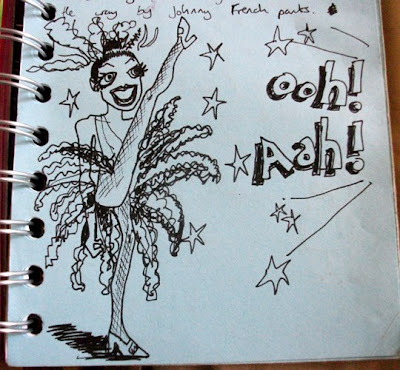 the way by Johnny French pants.
Ooh!
Aah!